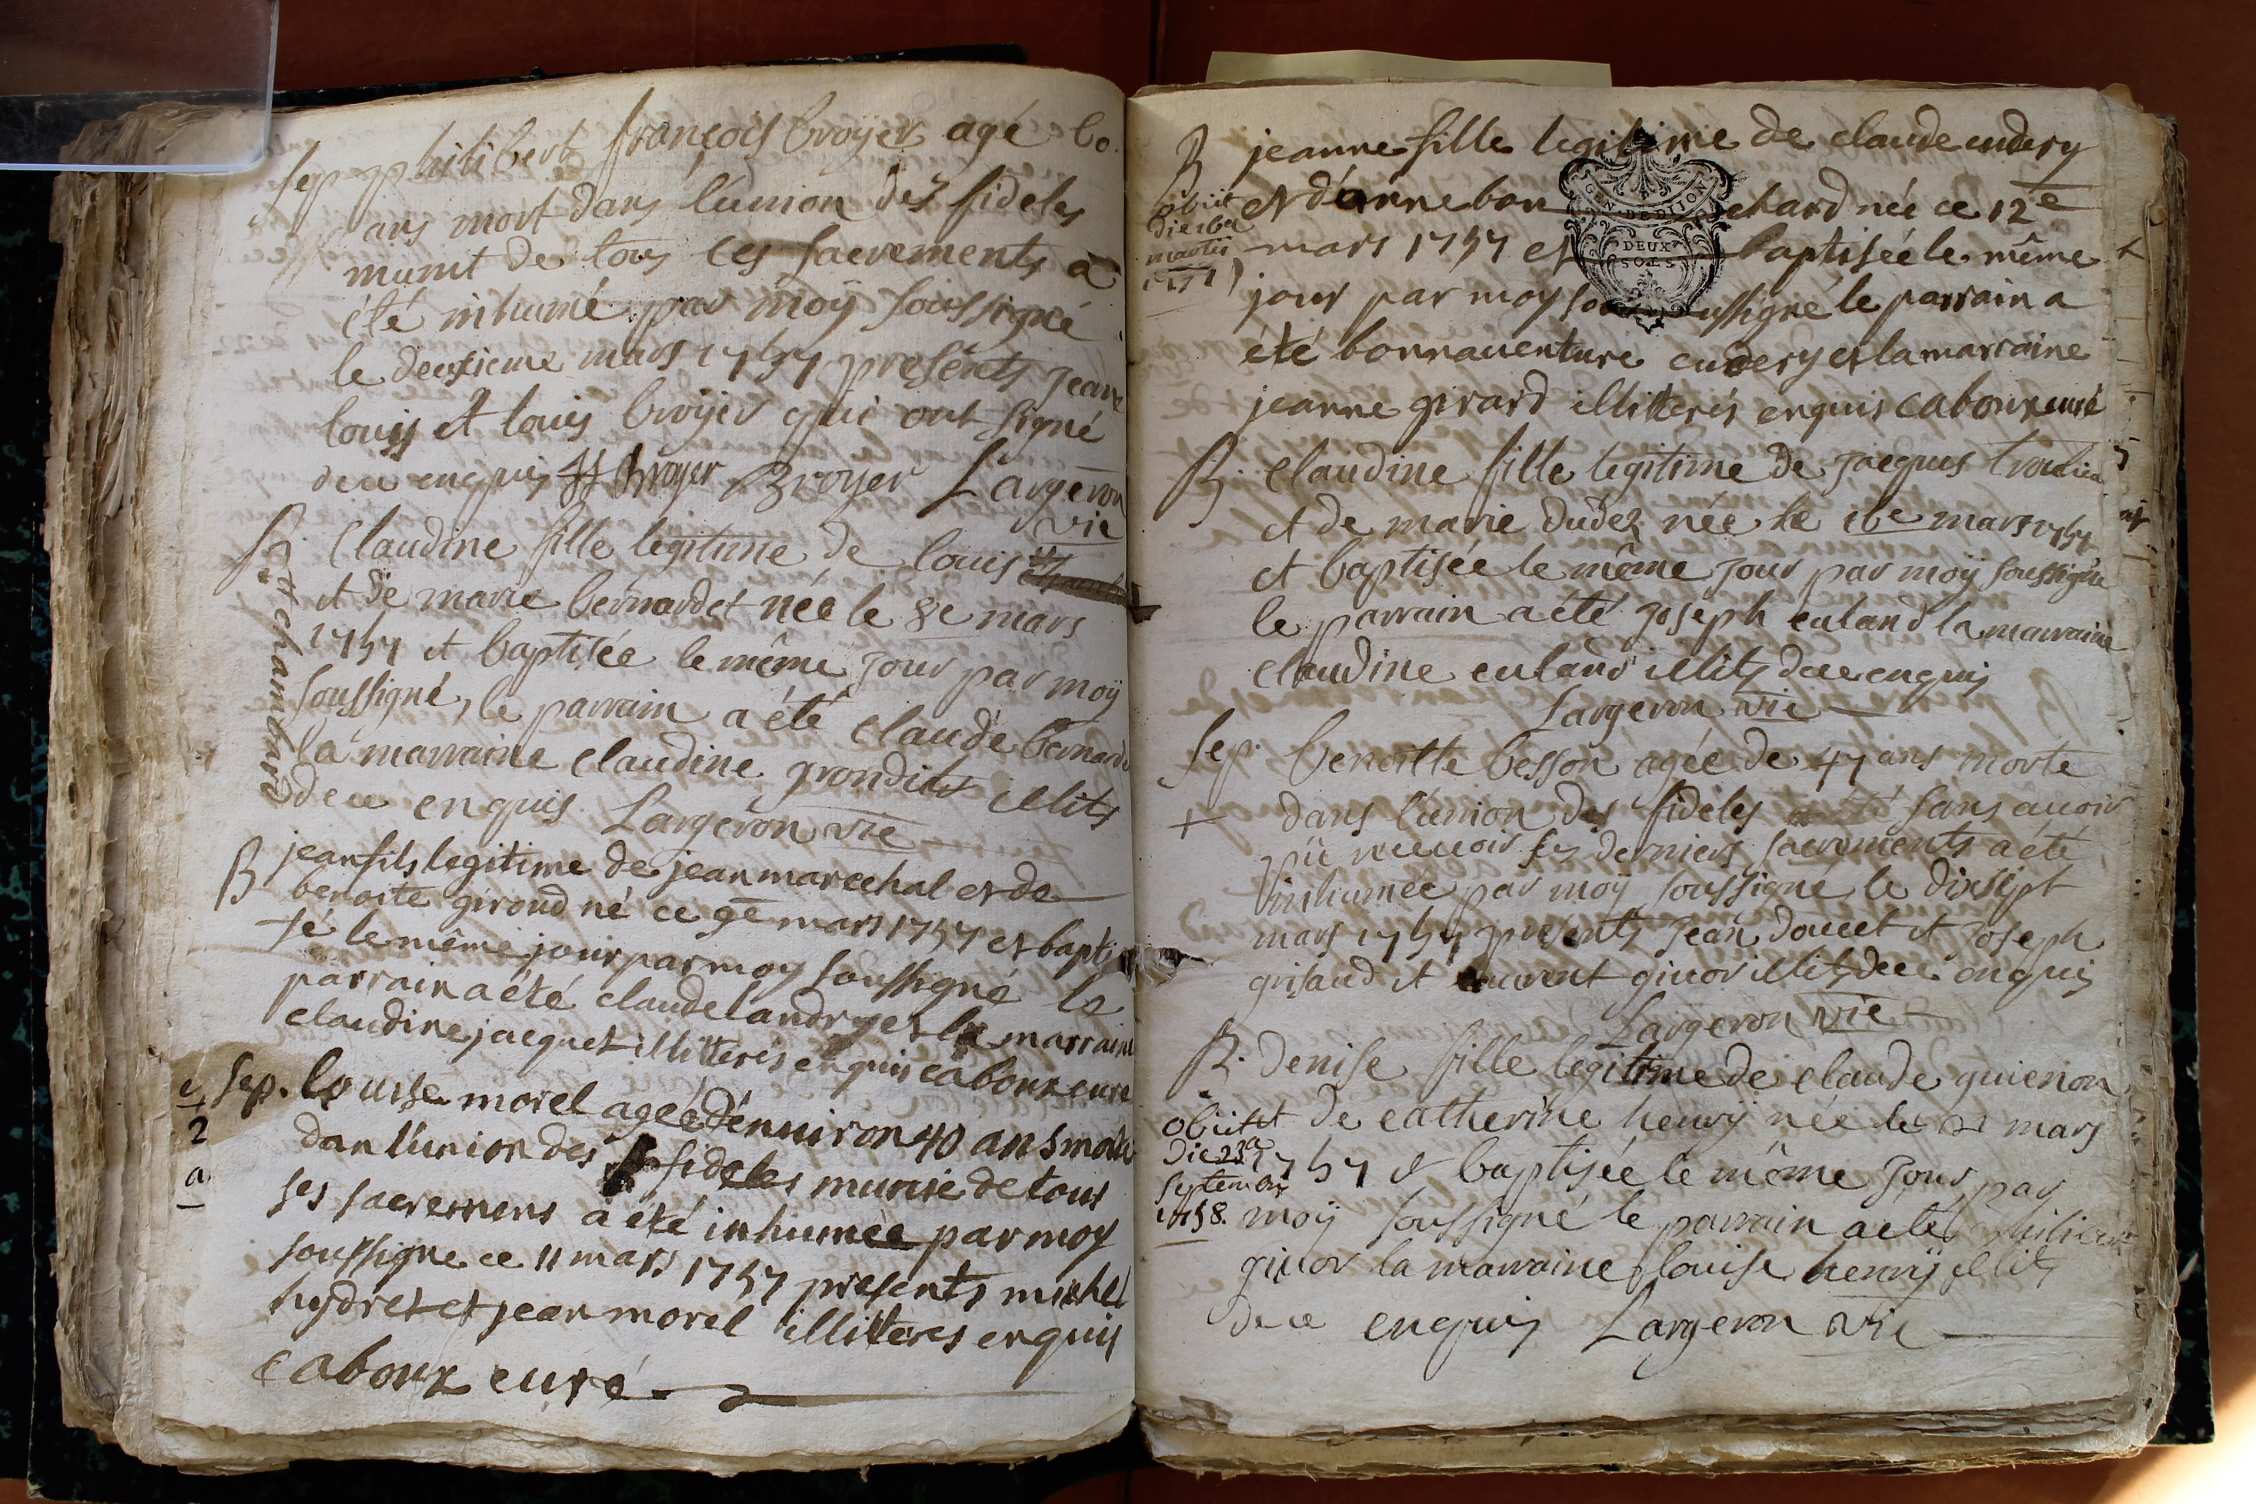 Sep philibert françois broÿer agé 60
ans mort dans l'union des fideles
munit de tous ces sacrements a
été inhumé par moÿ soussigné
le deuxieme mars 1757 presents jean
louis et louis broÿer qui ont signé
de ce enquis JJ Broyer Broyer Largeron
vic
B. Claudine fille legitime de louis
et chambard
et de marie bernardet née le 8e mars
1757 et baptisée le même jour par moÿ
soussigné, le parrain a été claude bernard
la marraine claudine grondit illits
de ce enquis Largeron vic
B jean fils legitime de jean marechal et de
benoite giroud né ce 9e mars 1757 et bapti
sé le même jour par moy soussigné le
parrain a été claude landry et la marraine
claudine jacquet illitterés enquis cabour curé
Sep. louise morel agée d'enuiron 40 ans morte
2
a
dan l'union des fideles munie de tous
ses sacremens a été inhumée par moy
soussigne ce 11 mars 1757 presents michel
hydret et jean morel illitteres enquis
cabour curé
B jeanne fille legitime de claude cudery
obiit
die 16a
martis
1757
et d'anne bon chard née ce 12e
GEN. DE DIJON
DEUX
SOLS
mars 1757 et baptisée le même
jour par moy soussigné le parrain a
été bonnauenture cudery et la marraine
jeanne girard illitterés enquis cabour curé
B. Claudine fille legitime de jacques
et de marie dudez née le 16e mars 1757
et baptisée le même jour par moÿ soussigné
le parrain a été joseph euland la marraine
claudine euland illits de ce enquis
Largeron vic
Sep. benoitte besson agée de 47 ans morte
+
dans l'union des fideles sans auoir
pû receuoir ses derniers sacrements a été
inhumée par moÿ soussigné le dixsept
mars 1757 presents jean doucet et joseph
grisaud et laurent giuor illits de ce enquis
Largeron vic
B. Denise fille legitime de claude guienon
obiit
die 23a
septembris
1758.
et de catherine henrÿ née le 21 mars
1757 et baptisée le même jour par
moÿ soussigné le parrain a été philibert
giuor la marraine louise henrÿ illits
de ce enquis Largeron vic